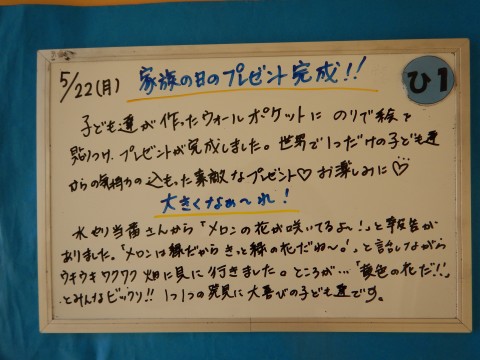 5/22(月) 家族の日のプレゼント完成!! ひ1
子ども達が作ったウォールポケットに のりで絵を
貼りつけ、プレゼントが完成しました。世界で1つだけの子ども達
からの気持ちの込もった素敵なプレゼント♡ お楽しみに♡
大きくなぁ〜れ!
水やり当番さんから「メロンの花が咲いてるよ〜!」と報告が
ありました。「メロンは緑だから きっと緑の花だね〜!」と話しながら
ウキウキワクワク 畑に見に行きました。ところが…「黄色の花だ!!」
とみんなビックリ!! 1つ1つの発見に大喜びの子ども達です。